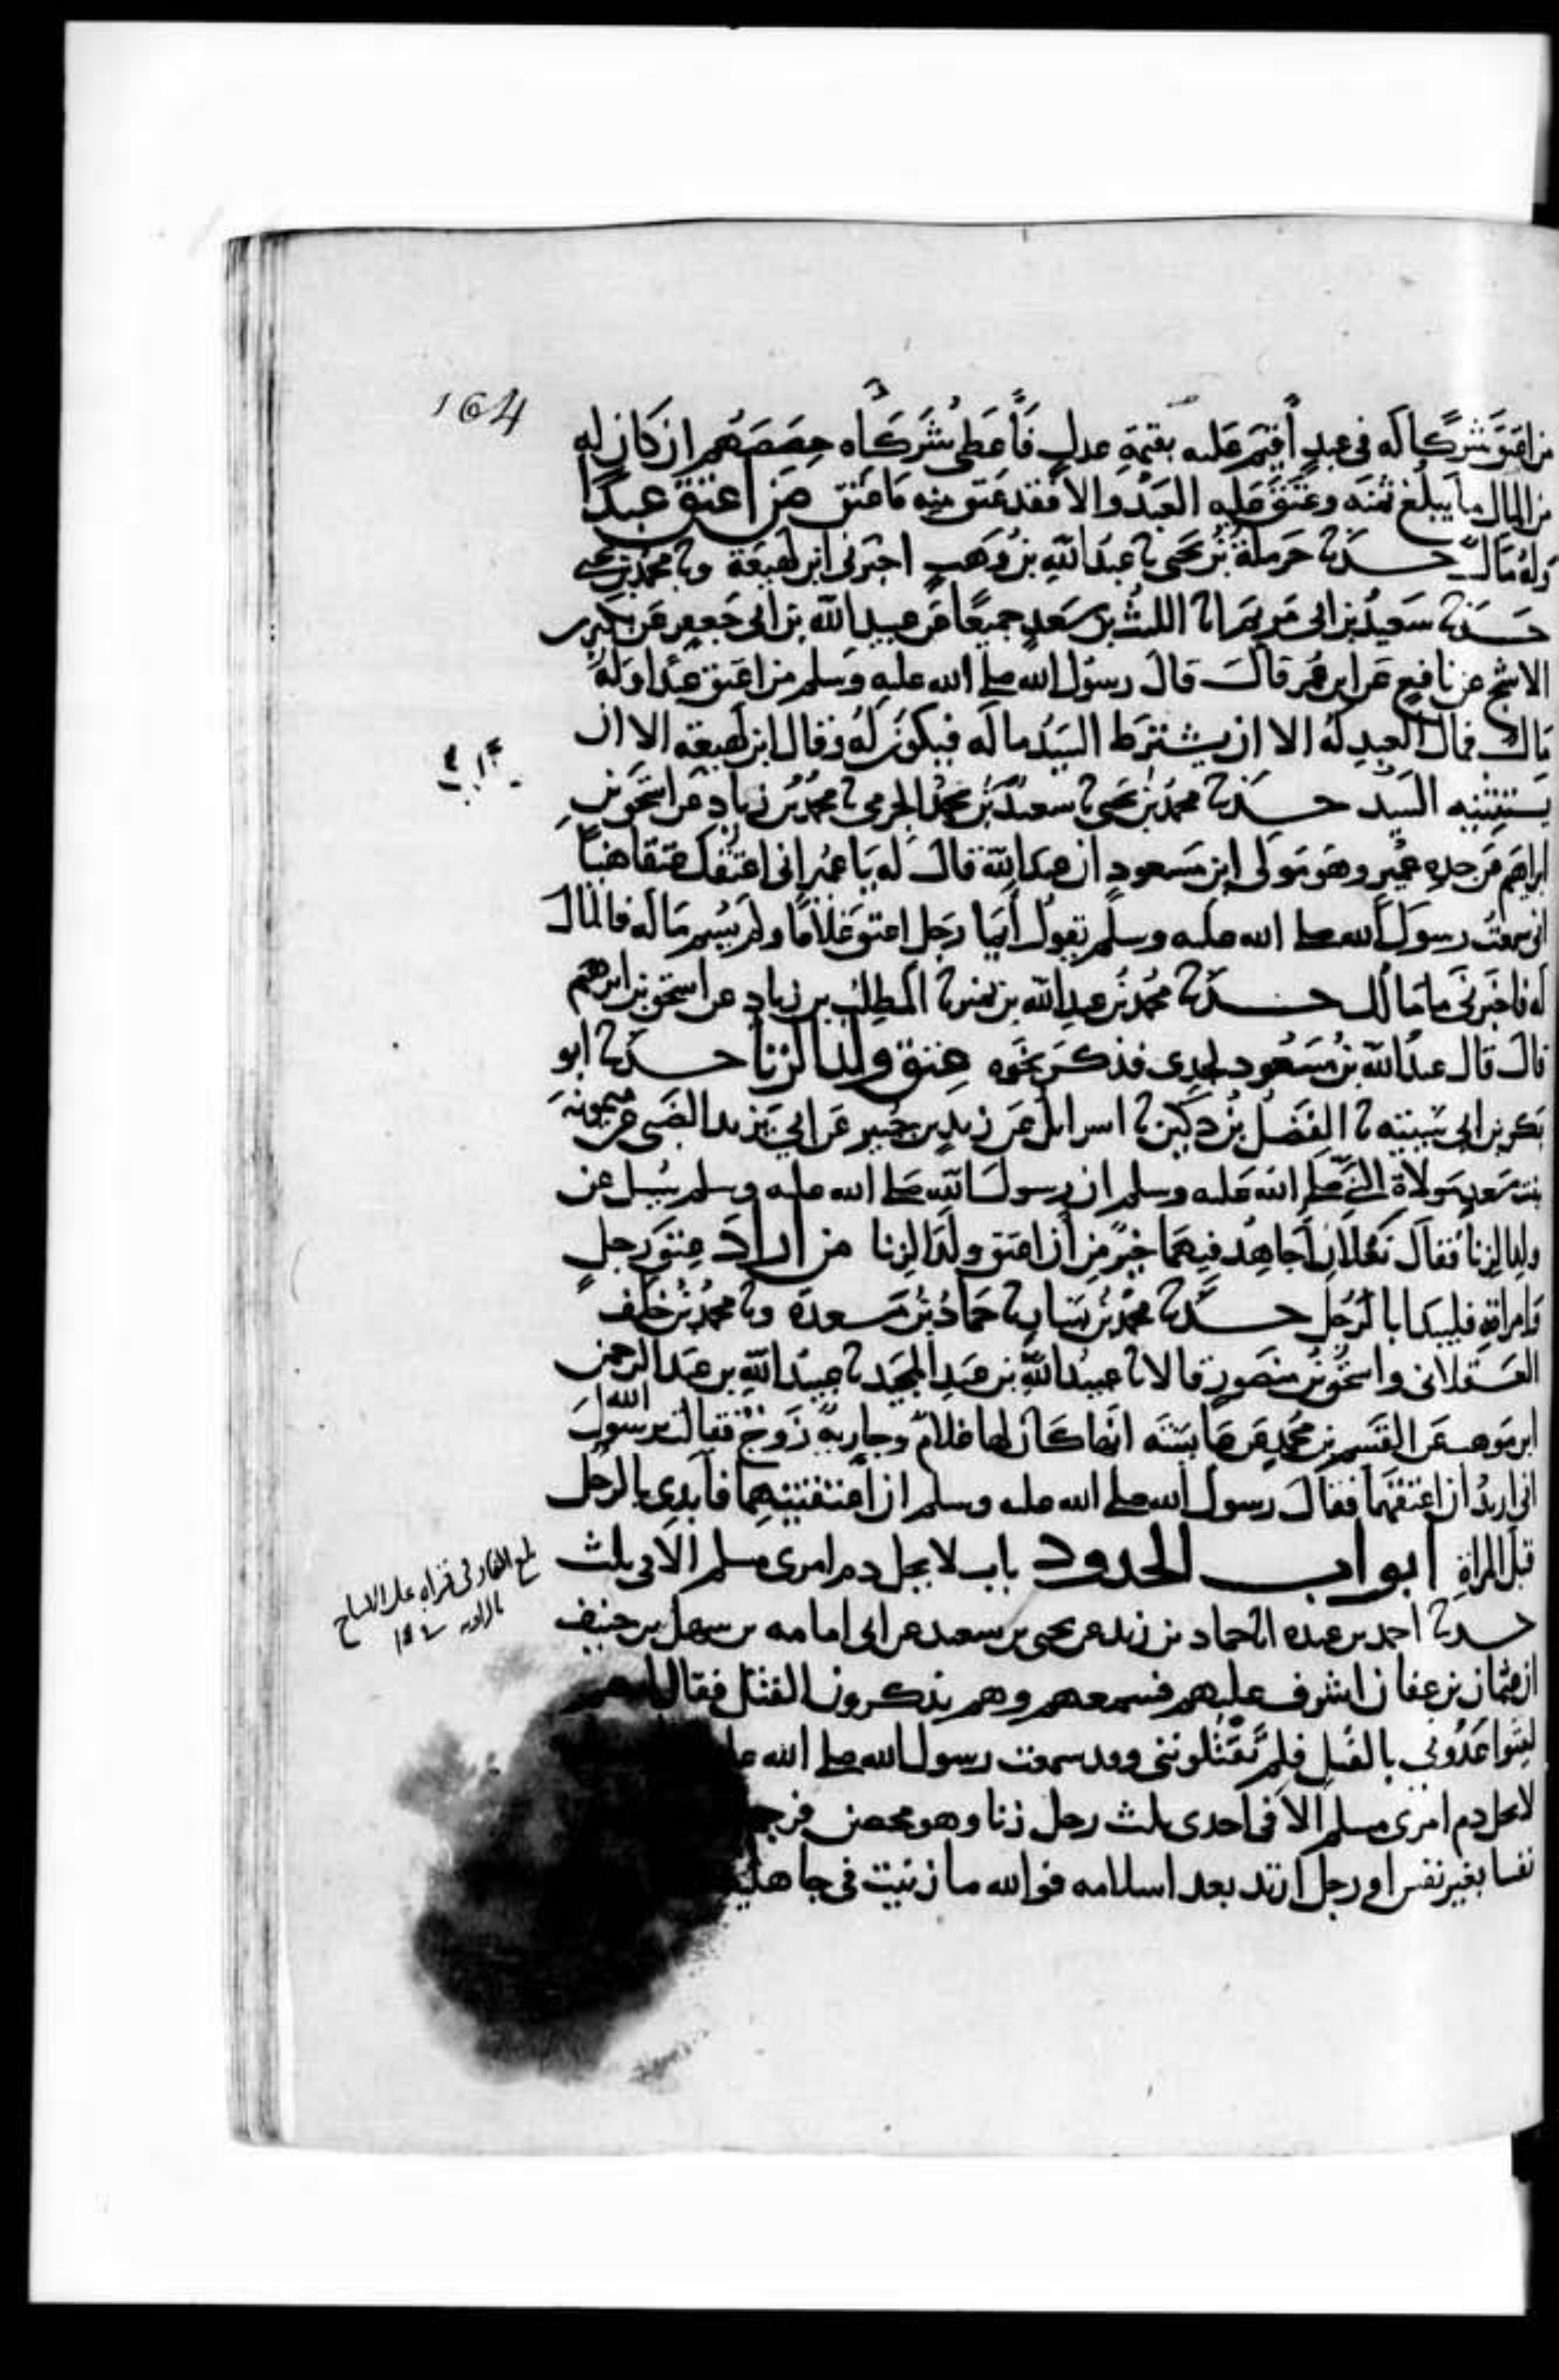 164
من اعتق شركا له في عبد أقيم عليه بقيمة عدل فأعطى شركاه حصصهم ان كان له
من المال ما يبلغ ثمنه وعتق عليه العبد والا فقد عتق منه ما عتق من اعتق عبدا
وله مال حدثنا حرملة بن يحيى نا عبد الله بن وهب اخبرني ابن لهيعة ونا محمد بن يحيى
حدثنا سعيد بن ابي مريم انا الليث بن سعد جميعا عن عبيد الله بن ابي جعفر عن بكير بن
الاشج عن نافع عن ابن عمر قال قال رسول الله صلى الله عليه وسلم من اعتق عبدا وله
مال فمال العبد له الا ان يشترط السيد ماله فيكون له وقال ابن لهيعة الا ان
يستثنيه السيد حدثنا محمد بن يحيى نا سعيد بن محمد الجرمي نا محمد بن زياد عن اسحق بن
ابراهيم عن جده عمير وهو مولى ابن مسعود ان عبد الله قال له يا عمير اني اعتقتك عتقا هنيا
اني سمعت رسول الله صلى الله عليه وسلم يقول أيما رجل اعتق غلاما ولم يسم ماله فالمال
له فاخبرني ما مالك حدثنا محمد بن عبد الله بن نمير نا المطلب بن زياد عن اسحق بن ابرهيم
قال قال عبد الله بن مسعود لجدي فذكر نحوه عتق ولد الزنا حدثنا ابو
بكر بن ابي شيبة نا الفضل بن دكين نا اسرايل عن زيد بن جبير عن ابي يزيد الضبي عن ميمونة
بنت سعد مولاة النبي صلى الله عليه وسلم ان رسول الله صلى الله عليه وسلم سيل عن
ولد الزنا فقال نعلان أجاهد فيهما خير من أن اعتق ولد الزنا من اراد عتق رجل
وامراته فليبدا بالرجل حدثنا محمد بن بشار نا حماد بن مسعدة ونا محمد بن خلف
العسقلاني واسحق بن منصور قالا نا عبيد الله بن عبد المجيد نا عبيد الله بن عبد الرحمن
ابن موهب عن القسم بن محمد عن عايشة انها كان لها غلام وجارية زوج فقالت يرسول الله
اني اريد ان اعتقهما فقال رسول الله صلى الله عليه وسلم ان اعتقتيهما فابدي بالرجل
قبل المراة ابواب الحدود باب لا يحل دم امرى مسلم الا في ثلث
حدثنا احمد بن عبدة انا حماد بن زيد عن يحيى بن سعيد عن ابي امامه بن سهل بن حنيف
ان عثمان بن عفان اشرف عليهم فسمعهم وهم يذكرون القتل فقال انهم
ليتواعدوني بالقتل فلم تقتلونني وقد سمعت رسول الله صلى الله
لا يحل دم امرى مسلم الا في احدى ثلث رجل زنا وهو محصن فرجم
نفسا بغير نفس او رجل ارتد بعد اسلامه فوالله ما زنيت في جاهلية